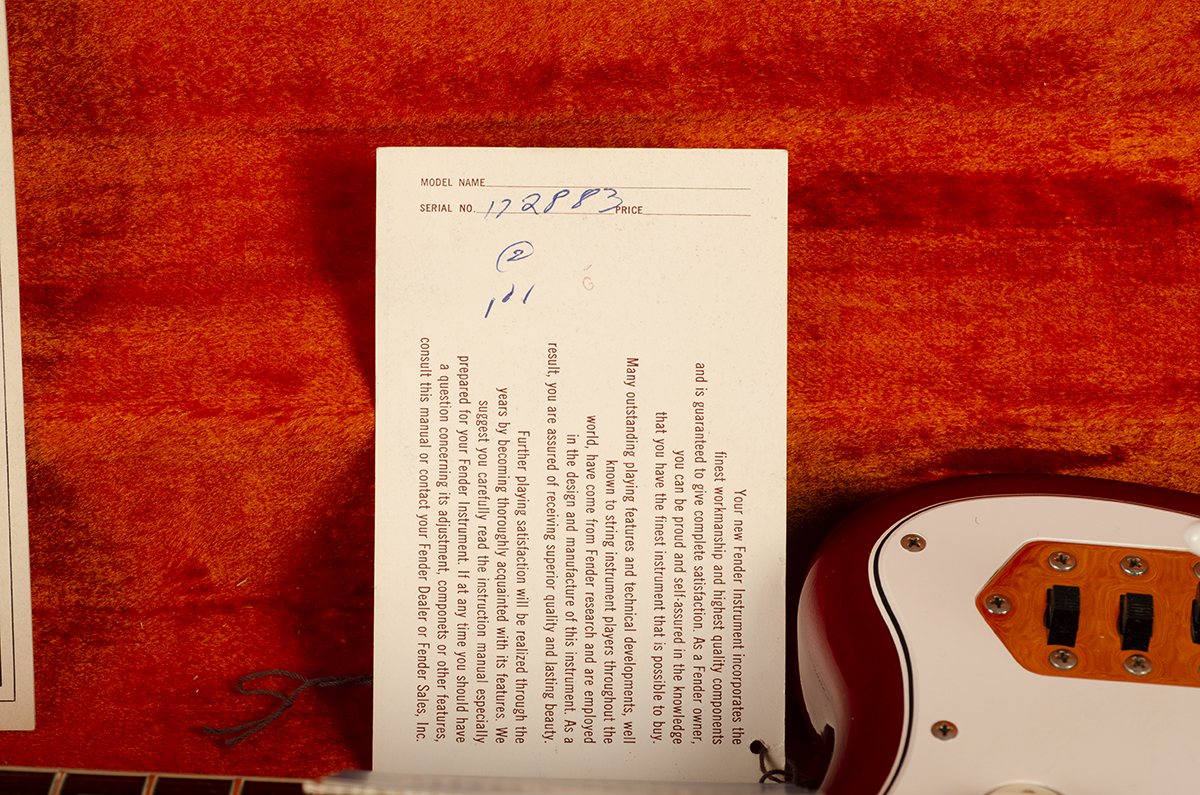 MODEL NAME
SERIAL NO. 172883 PRICE
2
Your new Fender Instrument incorporates the
finest workmanship and highest quality components
and is guaranteed to give complete satisfaction. As a Fender owner,
you can be proud and self-assured in the knowledge
that you have the finest instrument that is possible to buy.
Many outstanding playing features and technical developments, well
known to string instrument players throughout the
world, have come from Fender research and are employed
in the design and manufacture of this instrument. As a
result, you are assured of receiving superior quality and lasting beauty.
Further playing satisfaction will be realized through the
years by becoming thoroughly acquainted with its features. We
suggest you carefully read the instruction manual especially
prepared for your Fender Instrument. If at any time you should have
a question concerning its adjustment, componets or other features,
consult this manual or contact your Fender Dealer or Fender Sales, Inc.